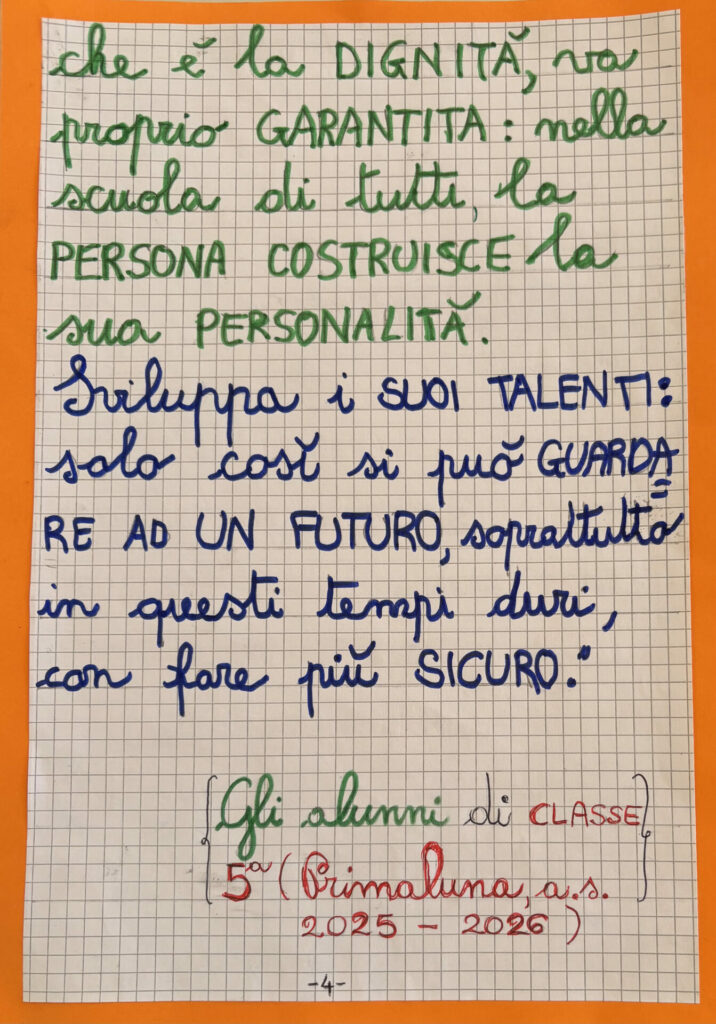 che è la DIGNITĂ, va
proprio GARANTITA: nella
scuola di tutti, la
PERSONA COSTRUISCE la
sua PERSONALITĂ.
Sviluppa i SUOI TALENTI:
solo cosĭ si può GUARDA=
RE AD UN FUTURO, soprattutto
in questi tempi duri,
con fare più SICURO."
Gli alunni di CLASSE
5ª (Primaluna, a.s.
2025 - 2026)
-4-